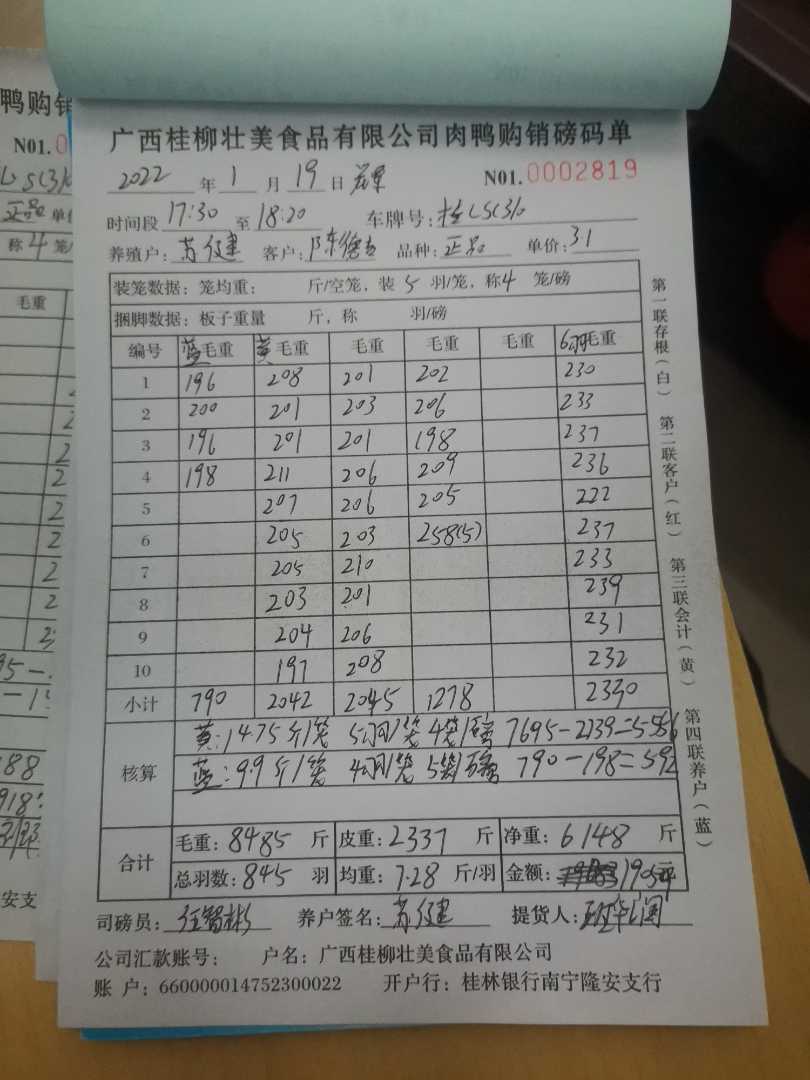 鸭购销
N01.0
正品 单
称 4 笼/
毛重
广西桂柳壮美食品有限公司肉鸭购销磅码单
2022 年 1 月 19 日 N01.0002819
时间段 17:30 至 18:20 车牌号: 桂L5C310
养殖户: 苏健 客户: 陈德 品种: 正品 单价: 3.1
装笼数据: 笼均重: 斤/空笼, 装 5 羽/笼, 称 4 笼/磅
捆脚数据: 板子重量 斤, 称 羽/磅
编号 蓝毛重 黄毛重 毛重 毛重 毛重 6羽毛重
1 196 208 201 202 230
2 200 201 203 206 233
3 196 201 201 198 237
4 198 211 206 209 236
5 207 206 205 222
6 205 203 258(5) 237
7 205 210 233
8 203 201 239
9 204 206 231
10 197 208 232
小计 790 2042 2045 1278 2330
核算 黄:14.75斤/笼 5羽/笼 4笼/磅 7695-2139=5556
蓝:9.9斤/笼 4羽/笼 5笼/磅 790-198=592
合计 毛重: 8485 斤 皮重: 2337 斤 净重: 6148 斤
总羽数: 845 羽 均重: 7.28 斤/羽 金额: 19059
司磅员: 养户签名: 苏健 提货人:
公司汇款账号: 户名: 广西桂柳壮美食品有限公司
账 户: 660000014752300022 开户行: 桂林银行南宁隆安支行
第一联存根(白) 第二联客户(红) 第三联会计(黄) 第四联养户(蓝)
安支